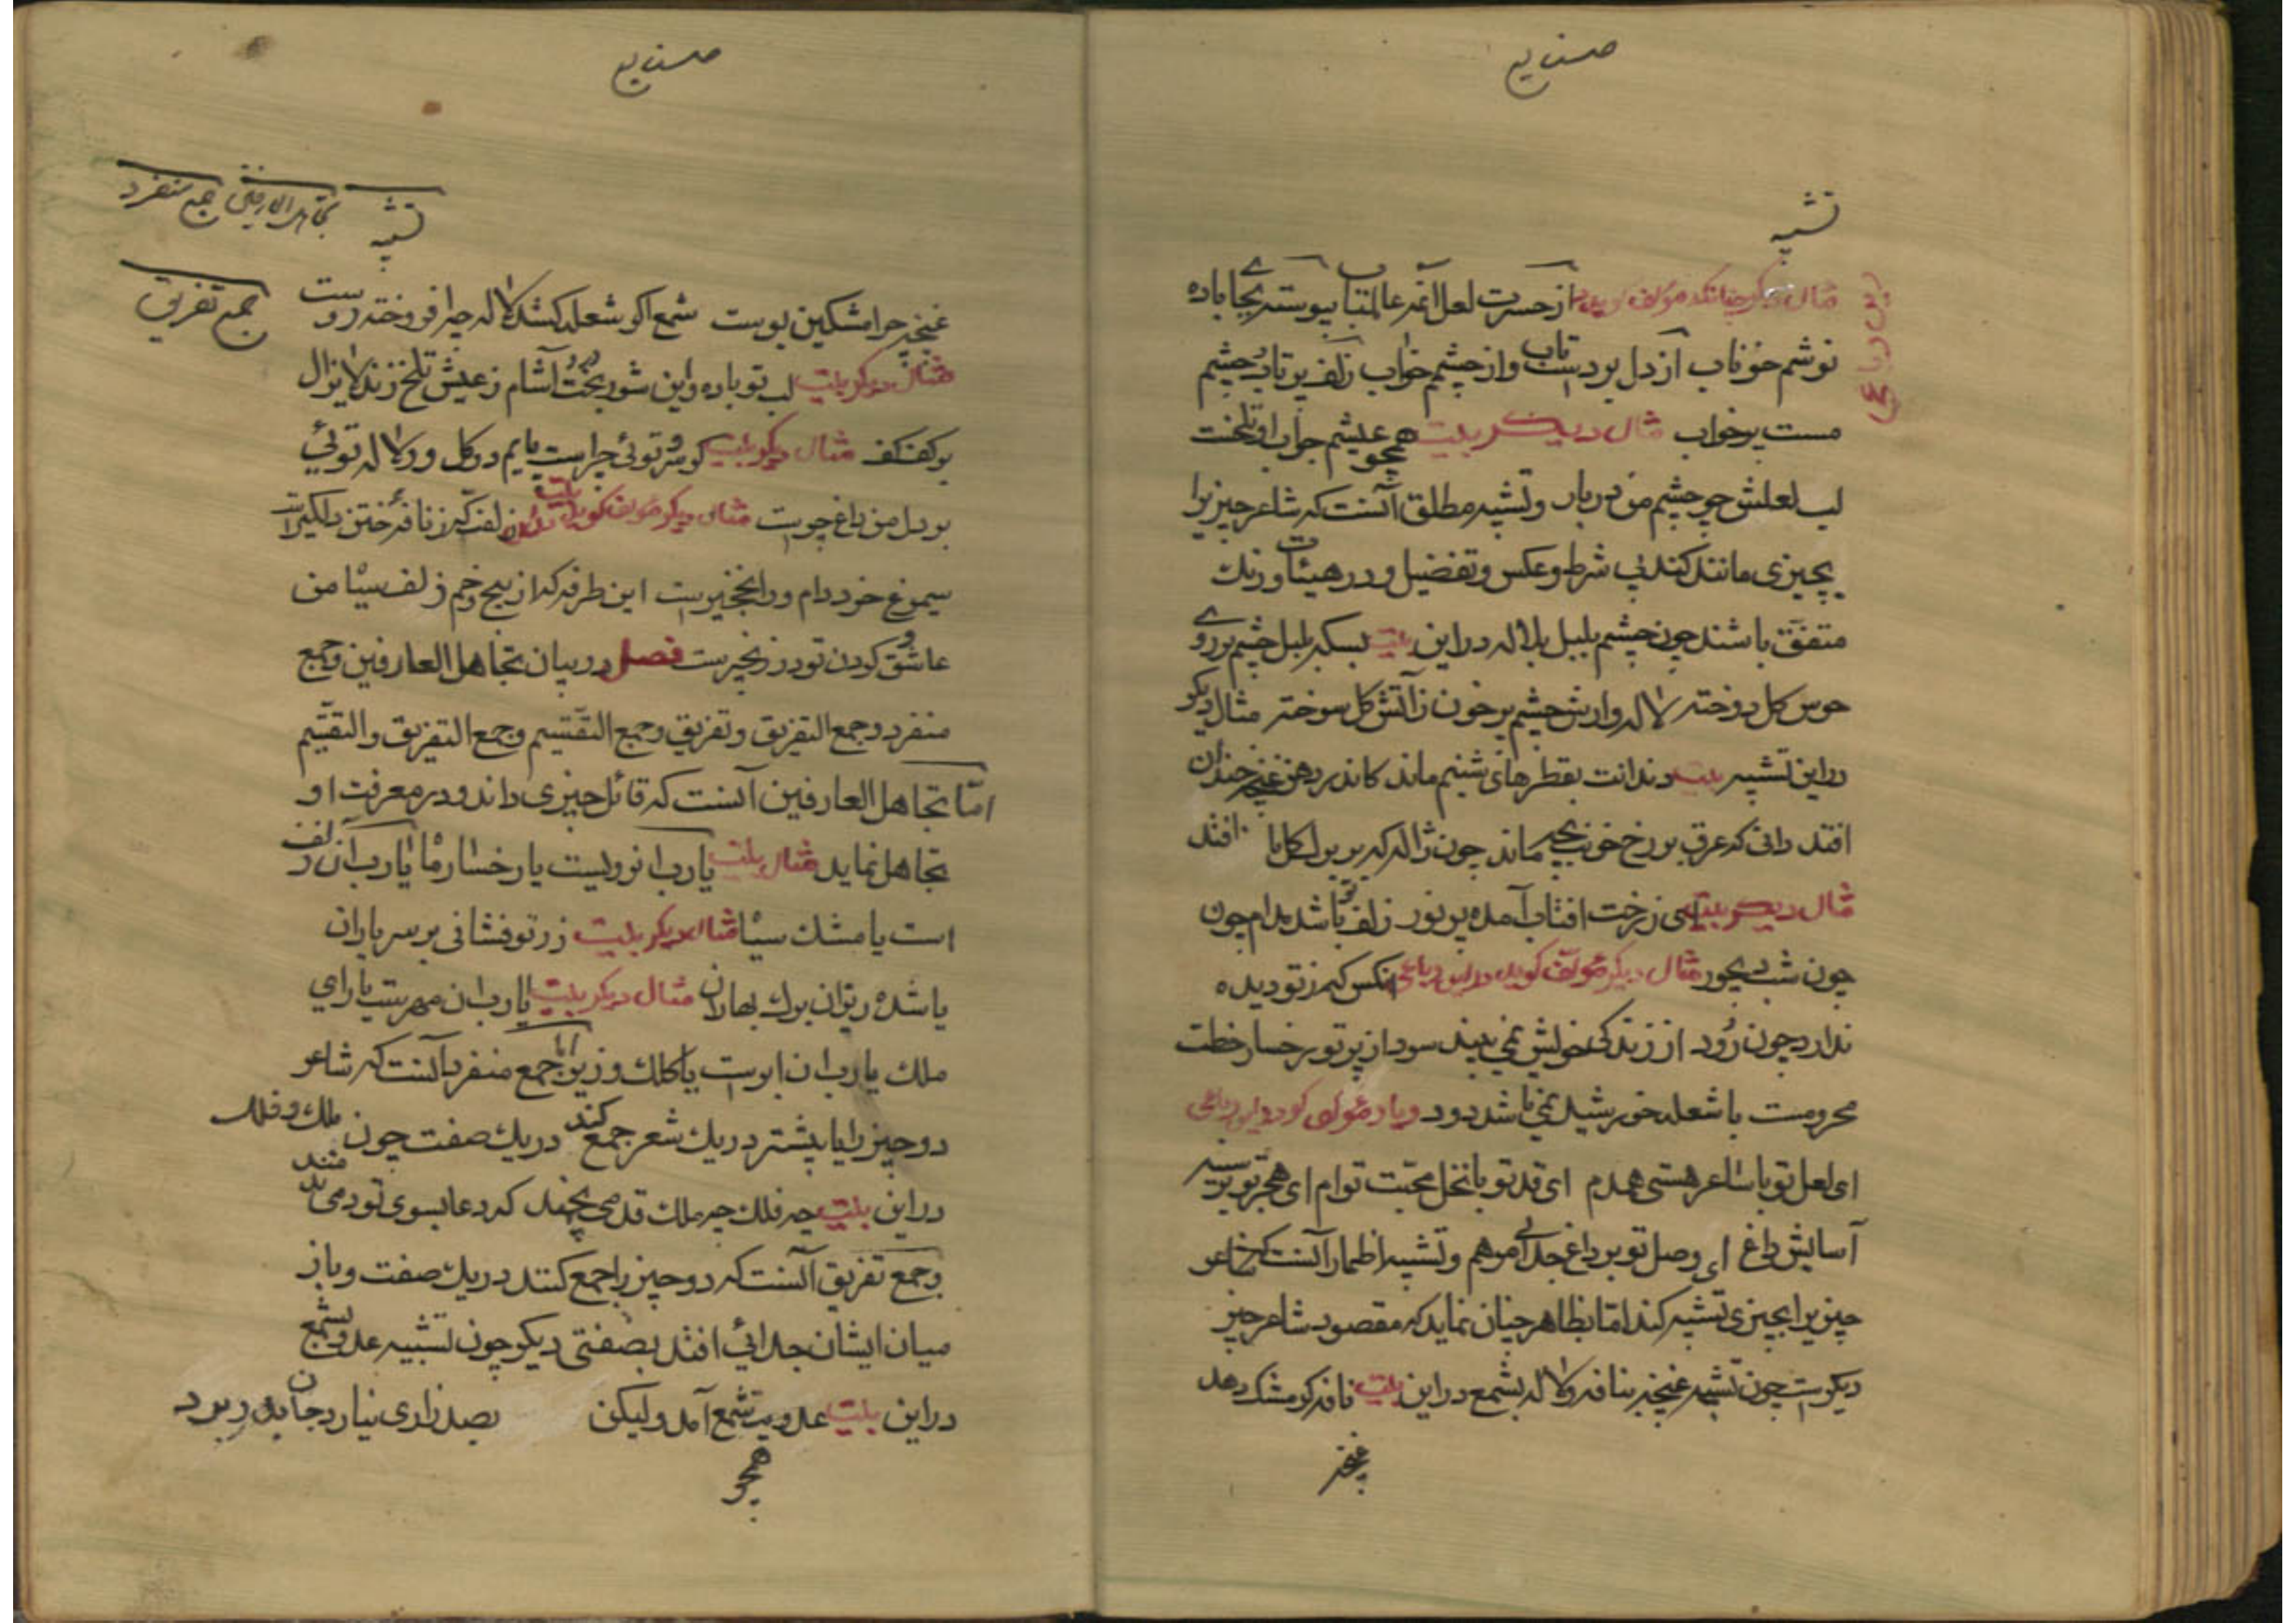 صنایع
تشبیه
مثال دیکر چنانکه مؤلف کوید از حسرت لعل آنمه عالمتاب پیوسته بجای باده
نوشم خوناب از دل برد است تاب و از چشم خواب زلف پرتاب و چشم
مست پر خواب مثال دیکر بیت همچو عیشم جواب او تلخست
لب لعلش چو چشم من دربار وتشبیه مطلق آنست که شاعر چیزیرا
بچیزی مانند کند بی شرط و عکس و تفضیل و در هیئات و رنك
متفق باشند چون چشم بلبل بلاله در این بیت بسکه بلبل چشم بر روی
حوس کل دوخته لاله وارش چشم پر خون زآتش کل سوخته مثال دیکر
در این تشبیه بیت دندانت بقطرهای شبنم ماند کاندر دهن غنچه خندان
افتد دانی که عرق بر رخ خوبت بچه ماند چون ژاله که بر برك کل افتد
مثال دیکر بیت ای زرخت افتاب آمده پر نور زلف تو باشد مدام چون
چون شب دیجور مثال دیکر مؤلف کوید در این رباعی انکس که ز تو دیده
ندارد چون رود از زندکی خویش نمی بیند سود از پرتو رخسار خطت
محرومست با شعله خورشید نمی باشد دود
ای لعل تو با ساغر هستی همدم ای قد تو با نخل محبت توام ای هجر تو بر سینه
آسایش داغ ای وصل تو بر داغ جدائی مرهم وتشبیه اظمار آنست که شاعر
چیزیرا بچیزی تشبیه کند اما بظاهر چنان نماید که مقصود شاعر چیز
دیکرست چون تشبیه غنچه بنافه ولاله بشمع در این بیت نافه کر مشك دهد
غنچه
صنایع
تشبیه تجاهل العارفین جمع منفرد
جمع تفریق
غنچه چرا مشکین پوست شمع اکر شعله کشد لاله چرا فروخته روست
مثال دیکر بیت لب تو باده و این شوربخت درد آشام ز عیش تلخ زند لایزال
بر کف کف مثال دیکر بیت کر سرو توئی چراست پایم در کل ور لاله توئی
بر دل من داغ چراست مثال دیکر مؤلف کوید بیت زلفت که ز نافه ختن دلکیرست
سیمرغ خرد دام ورا نخچیرست این طرفه که از پیچ و خم زلف سیا من
عاشق و کردن تو در زنجیرست فصل در بیان تجاهل العارفین وجمع
منفرد وجمع التفریق وتفریق وجمع التقسیم وجمع التفریق والتقسیم
اما تجاهل العارفین آنست که قائل چیزی داند ودر معرفت او
تجاهل نماید مثال بیت یارب آن رویست یا رخسار ما یارب آن زلف
است یا مشك سیا مثال دیکر بیت زر تو فشانی بر سر یاران
یا شده ریزان برك بهاران مثال دیکر بیت یارب ان مهرست یا رای
ملك یارب ان ابرست یا کلك وزیر اما جمع منفرد آنست که شاعر
دو چیز را یا بیشتر در یك شعر جمع کند در یك صفت چون ملك وفلك
در این بیت چه فلك چه ملك قد می بخمند که دعا بسوی تو دمی
وجمع تفریق آنست که دو چیز را جمع کنند در یك صفت وباز
میان ایشان جدائی افتد بصفتی دیکر چون تشبیه عدو بشمع
در این بیت عدویت شمع آمد ولیکن بصد زاری نیارد جان بدر برد
همچو